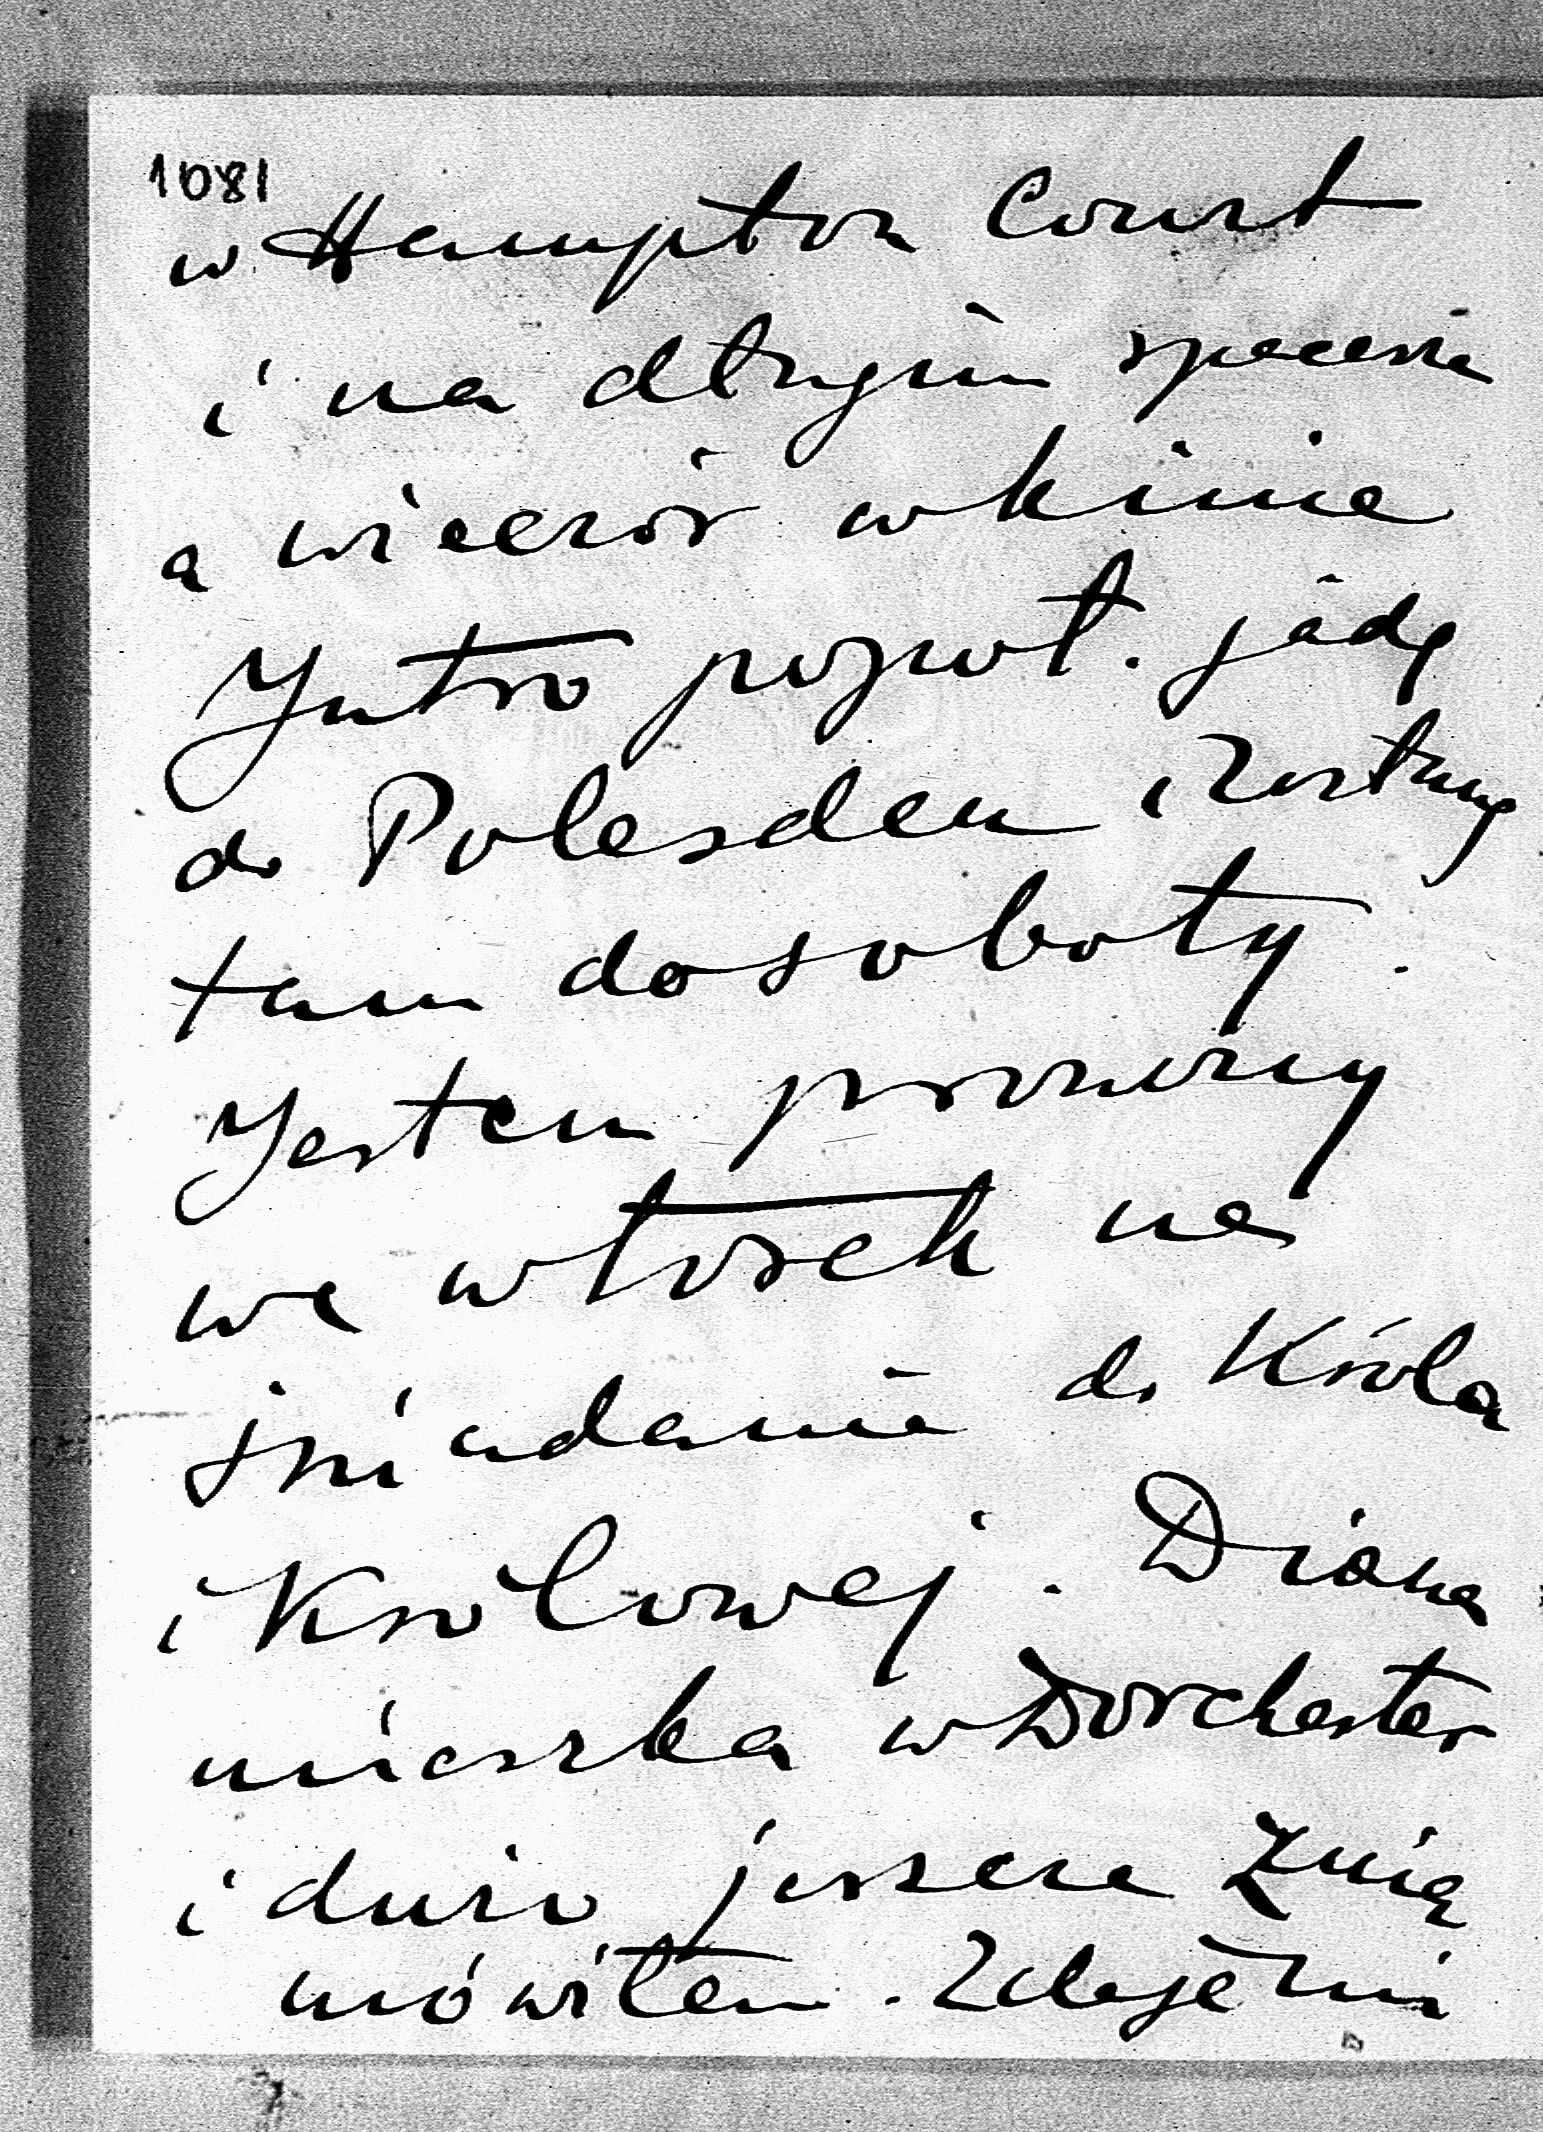 1081
w Hampton Court
i na długim spacerze
a wieczór w kinie
Jutro popoł. jadę
do Polesden i zostanę
tam do soboty.
Jestem proszony
we wtorek na
śniadanie do Króla
i Królowej. Diana
mieszka w Dorchester
i dużo jeszcze z nią
mówiłem. Zdaje mi